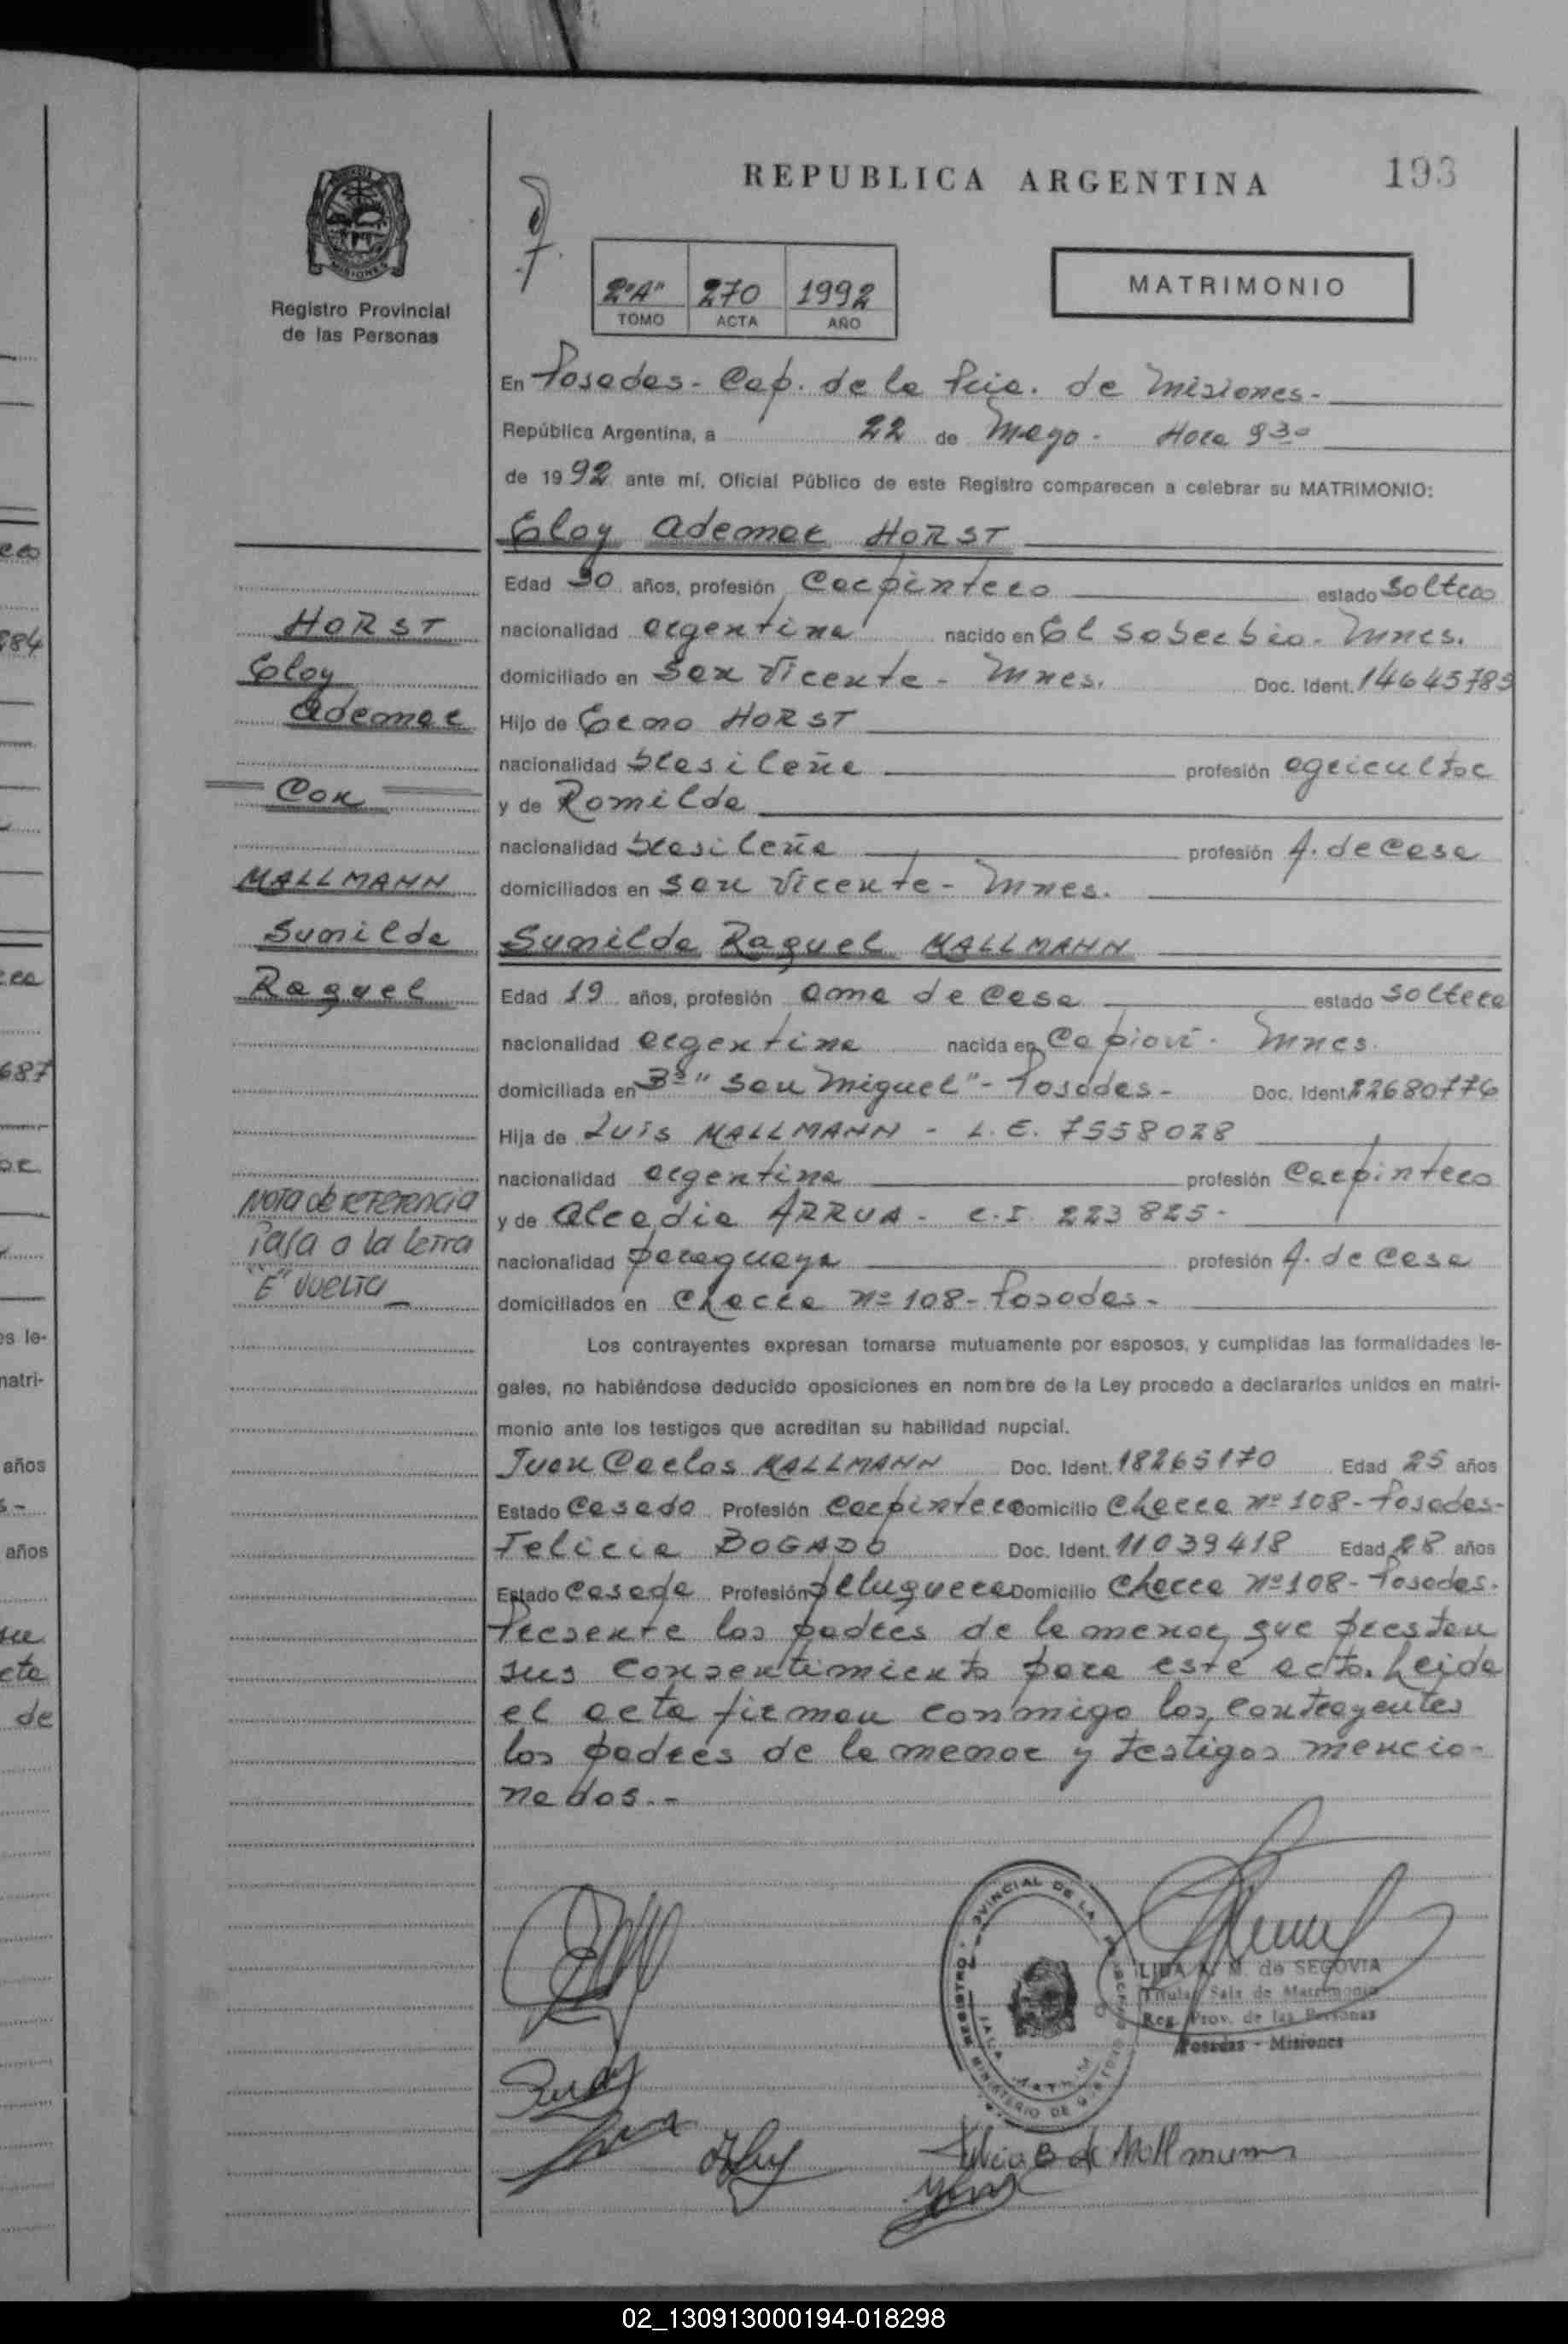 REPUBLICA ARGENTINA
193
MISIONES
Registro Provincial
de las Personas
2º"A" 270 1992
TOMO ACTA AÑO
MATRIMONIO
En Posadas - Cap. de la Pcia. de Misiones -
República Argentina, a 22 de Mayo - Hora 9 30
de 19 92 ante mí, Oficial Público de este Registro comparecen a celebrar su MATRIMONIO:
Eloy Ademar HORST
Edad 30 años, profesión Carpintero estado Soltero
nacionalidad argentina nacido en El Soberbio - Mnes.
domiciliado en San Vicente - Mnes. Doc. Ident. 14645785
Hijo de Erno HORST
nacionalidad brasileña profesión agricultor
y de Romilda
nacionalidad brasileña profesión A. de Casa
domiciliados en San Vicente - Mnes.
Sunilda Raquel MALLMANN
Edad 19 años, profesión ama de casa estado soltera
nacionalidad argentina nacida en Capiovi - Mnes.
domiciliada en Bº "San Miguel" - Posadas - Doc. Ident. 22680776
Hija de Luis MALLMANN - L.E. 7558028
nacionalidad argentina profesión Carpintero
y de Alcadia ARRUA - C.I. 223825 -
nacionalidad paraguaya profesión A. de Casa
domiciliados en Chacra Nº 108 - Posadas -
Los contrayentes expresan tomarse mutuamente por esposos, y cumplidas las formalidades le-
gales, no habiéndose deducido oposiciones en nombre de la Ley procedo a declararlos unidos en matri-
monio ante los testigos que acreditan su habilidad nupcial.
Juan Carlos MALLMANN Doc. Ident. 18265170 Edad 25 años
Estado Casado Profesión Carpintero Domicilio Chacra Nº 108 - Posadas -
Felicia BOGADO Doc. Ident. 11039418 Edad 28 años
Estado Casada Profesión peluquera Domicilio Chacra Nº 108 - Posadas -
Presente los padres de la menor que prestan
sus consentimiento para este acto. Leida
el acta firman conmigo los contrayentes
los padres de la menor y testigos mencio-
nados.-
HORST
Eloy
Ademar
Con
MALLMANN
Sunilda
Raquel
Nota de Referencia
Pasa a la letra
"E" vuelta
de SEGOVIA
Titular Sala de Matrimonio
Reg. Prov. de las Personas
Posadas - Misiones
Felicia B de Mallmann
02_130913000194-018298